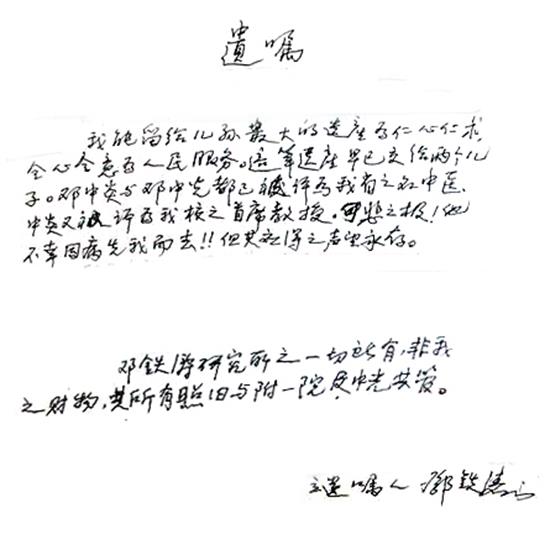 遗嘱
我能留给儿孙最大的遗产为仁心仁术,
全心全意为人民服务。这笔遗产早已交给两个儿
子。邓中炎与邓中光都已被评为我省之名中医,
中炎又被评为我校之首席教授。可惜之极!他
不幸因病先我而去!!但其应得之声望永存。
邓铁涛研究所之一切所有,非我
之财物,其所有照旧与附一院及中光共管。
立遗嘱人 邓铁涛